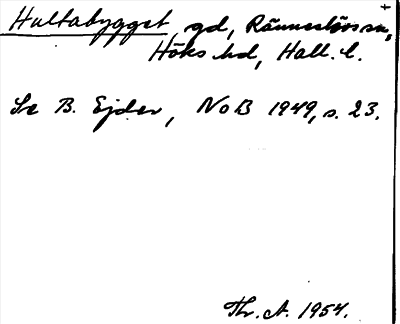 Hultabygget gd, Ränneslövs sn,
Höks hd, Hall. l.
Se B. Ejder, NoB 1949, s. 23.
Th. A. 1954.